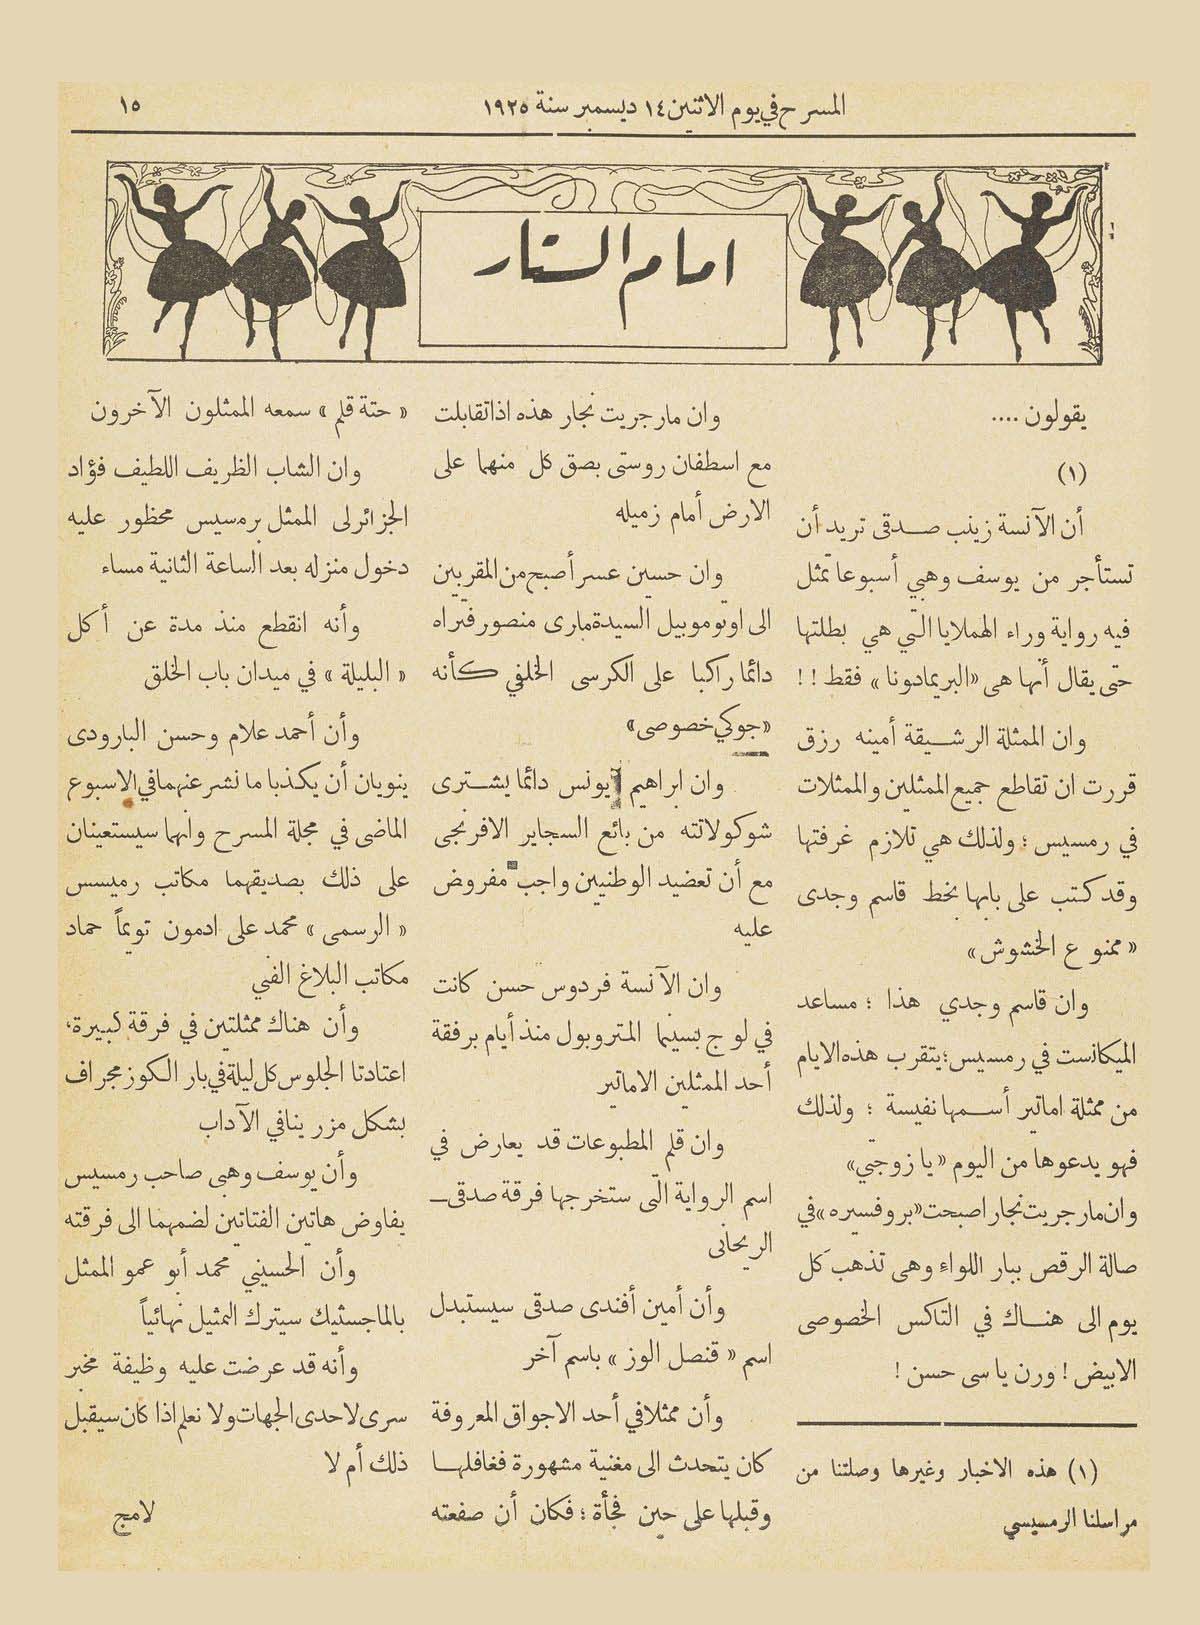 المسرح في يوم الاثنين ١٤ ديسمبر سنة ١٩٢٥
١٥
امام الستار
يقولون ....
(١)
أن الآنسة زينب صدقى تريد أن
تستأجر من يوسف وهبي أسبوعا تمثل
فيه رواية وراء الهملايا التي هي بطلتها
حتى يقال أنها هى «البريمادونا» فقط !!
وان الممثلة الرشيقة أمينه رزق
قررت ان تقاطع جميع الممثلين والممثلات
في رمسيس ؛ ولذلك هي تلازم غرفتها
وقد كتب على بابها بخط قاسم وجدى
« ممنوع الخشوش»
وان قاسم وجدي هذا ؛ مساعد
الميكانست في رمسيس؛ يتقرب هذه الايام
من ممثلة اماتير أسمها نفيسة ؛ ولذلك
فهو يدعوها من اليوم « يا زوجتي»
وان مارجريت نجار اصبحت «بروفسيره» في
صالة الرقص ببار اللواء وهى تذهب كل
يوم الى هناك في التاكس الخصوصى
الابيض ! ورن يا سى حسن !
(١) هذه الاخبار وغيرها وصلتنا من
مراسلنا الرمسيسي
وان مارجريت نجار هذه اذا تقابلت
مع اسطفان روستى بصق كل منهما على
الارض أمام زميله
وان حسين عسر أصبح من المقربين
الى اوتوموبيل السيدة مارى منصور فتراه
دائما راكبا على الكرسى الخلفي كأنه
«جوكي خصوصى»
وان ابراهيم يونس دائما يشترى
شوكولاتته من بائع السجاير الافرنجى
مع أن تعضيد الوطنيين واجب مفروض
عليه
وان الآنسة فردوس حسن كانت
في لوج بسينما المتروبول منذ أيام برفقة
أحد الممثلين الاماتير
وان قلم المطبوعات قد يعارض في
اسم الرواية التى ستخرجها فرقة صدقى ـ
الريحانى
وأن أمين أفندى صدقى سيستبدل
اسم « قنصل الوز » باسم آخر
وأن ممثلا في أحد الاجواق المعروفة
كان يتحدث الى مغنية مشهورة فغافلها
وقبلها على حين فجأة ؛ فكان أن صفعته
« حتة قلم » سمعه الممثلون الآخرون
وان الشاب الظريف اللطيف فؤاد
الجزائرلى الممثل برمسيس محظور عليه
دخول منزله بعد الساعة الثانية مساء
وأنه انقطع منذ مدة عن أكل
« البليلة » في ميدان باب الخلق
وأن أحمد علام وحسن البارودى
ينويان أن يكذبا ما نشر عنهما في الاسبوع
الماضى في مجلة المسرح وانهما سيستعينان
على ذلك بصديقهما مكاتب رميسس
« الرسمى » محمد على ادمون تويماً حماد
مكاتب البلاغ الفني
وأن هناك ممثلتين في فرقة كبيرة،
اعتادتا الجلوس كل ليلة في بار الكوزمجراف
بشكل مزر ينافي الآداب
وأن يوسف وهبى صاحب رمسيس
يفاوض هاتين الفتاتين لضمهما الى فرقته
وأن الحسيني محمد أبو عمو الممثل
بالماجستيك سيترك التمثيل نهائياً
وأنه قد عرضت عليه وظيفة مخبر
سرى لاحدى الجهات ولا نعلم اذا كان سيقبل
ذلك أم لا
لامج